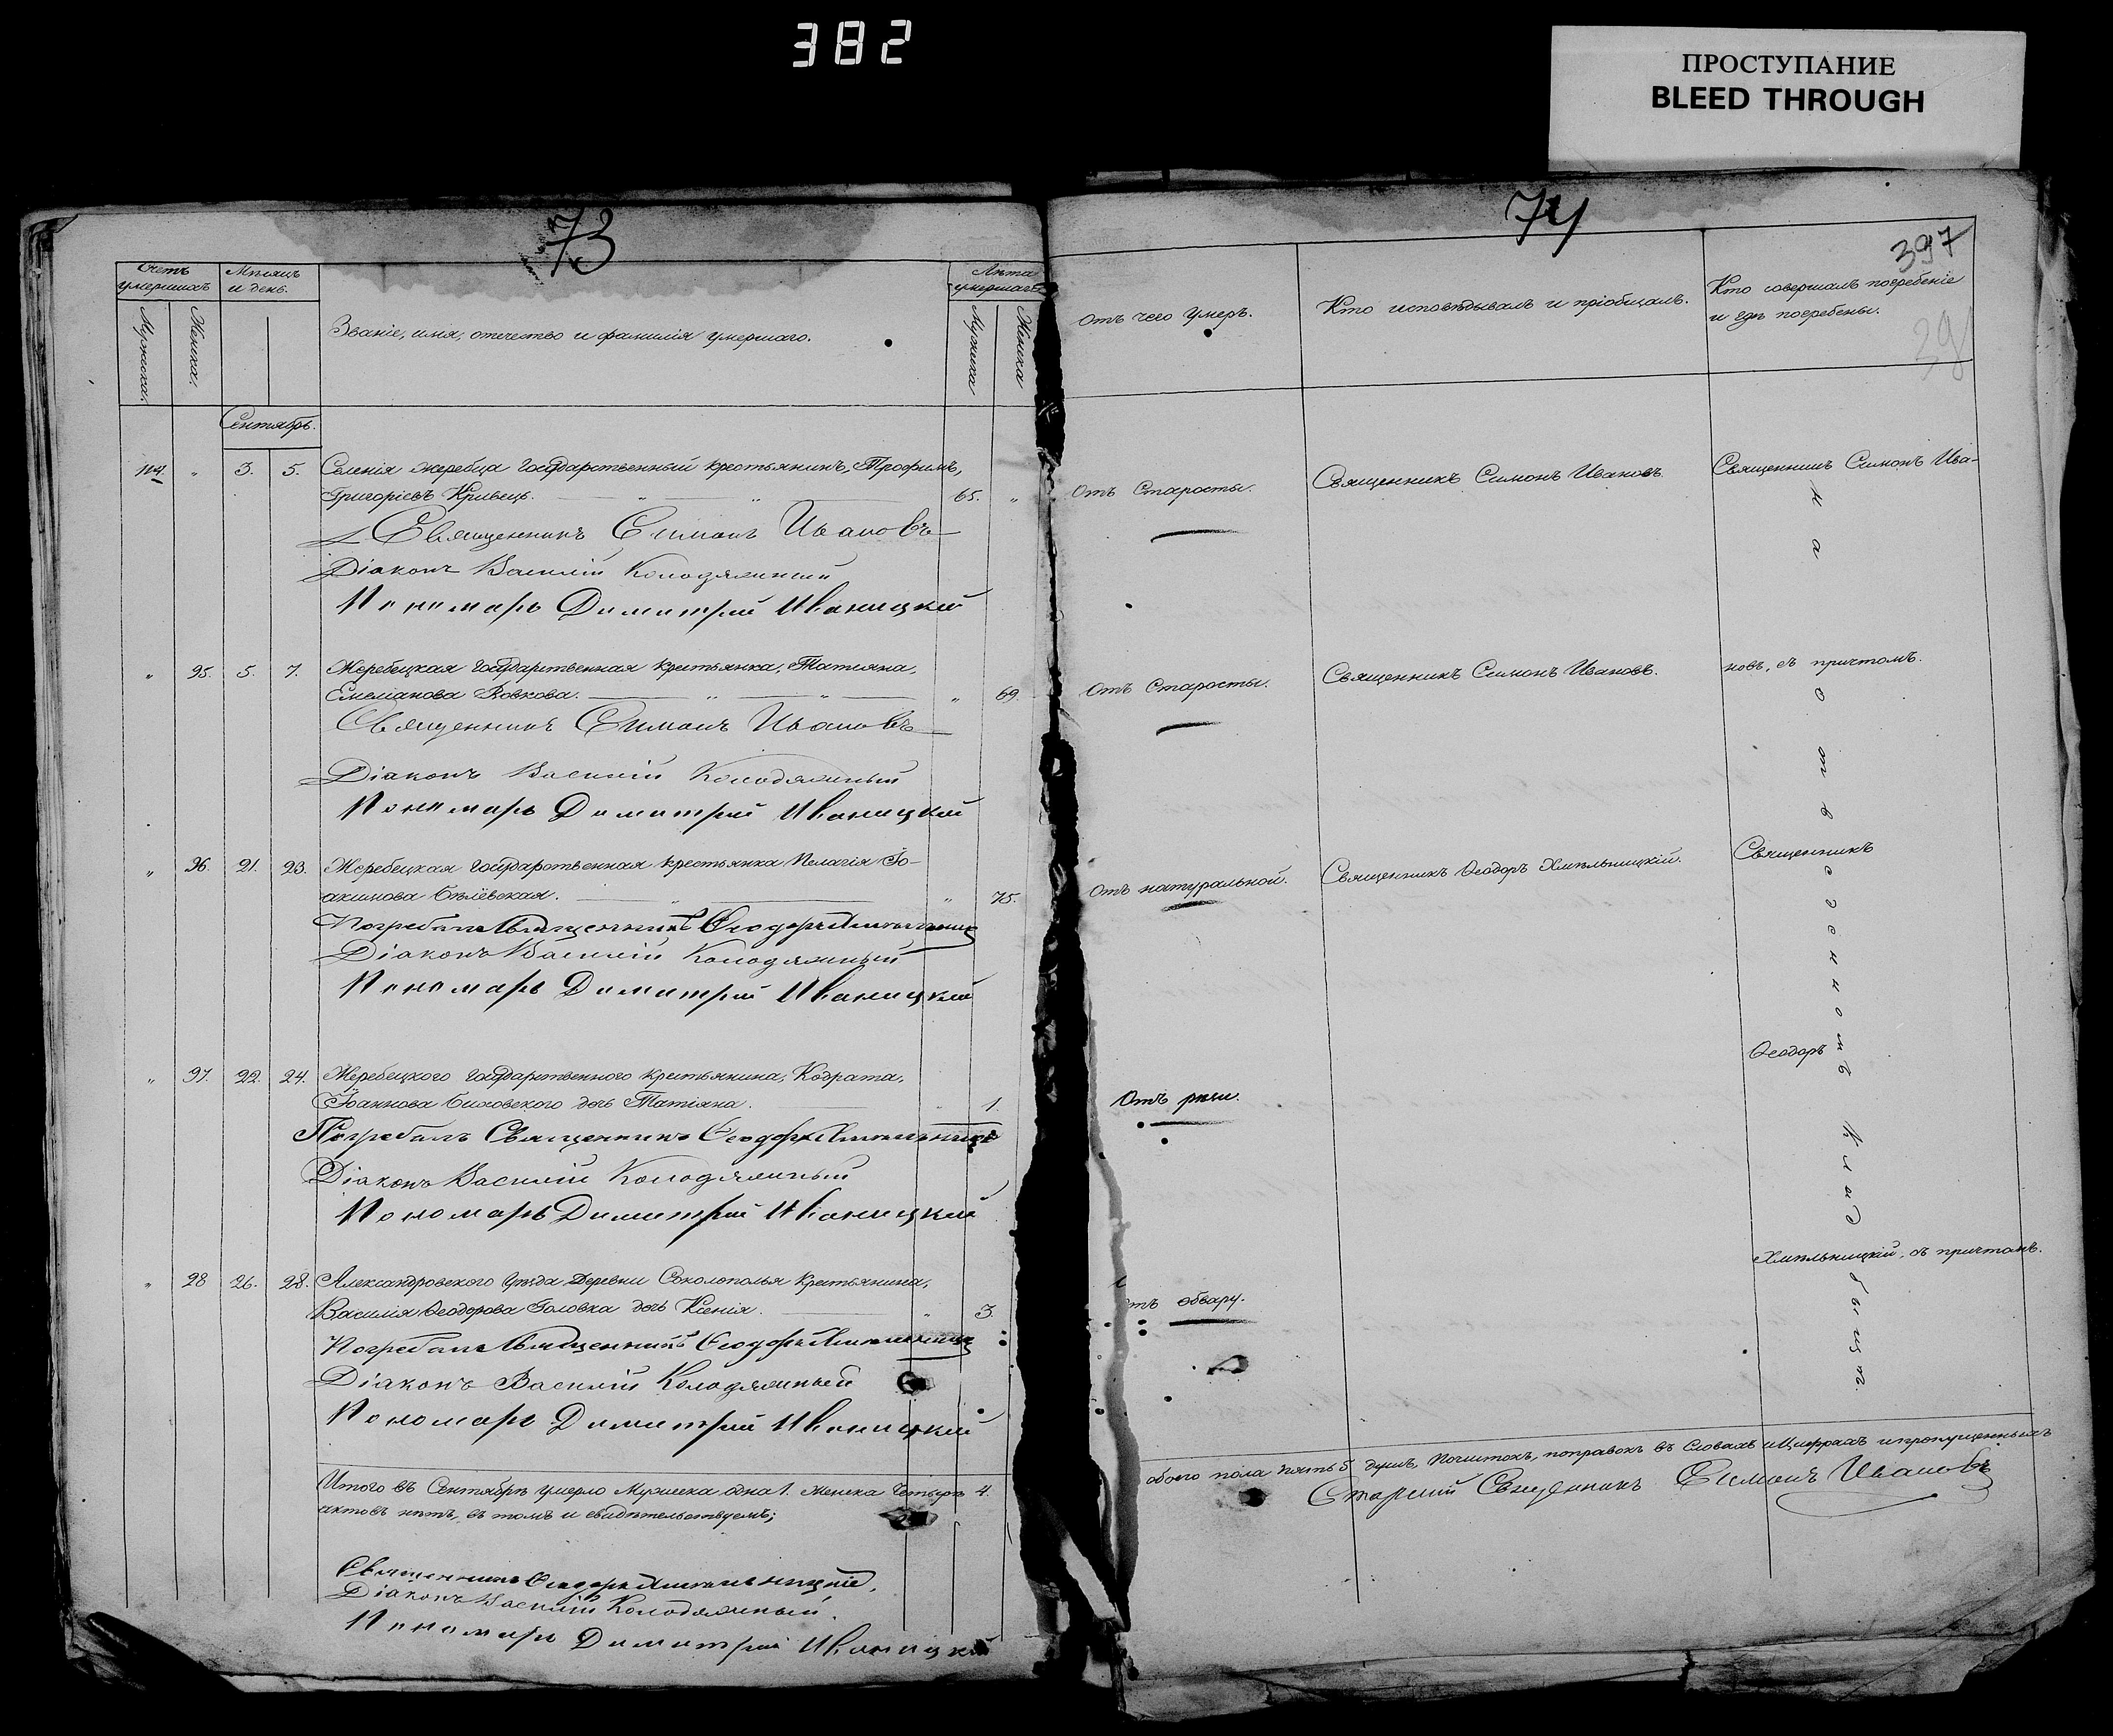 382
ПРОСТУПАНИЕ
BLEED THROUGH
73
Счетъ умершихъ
Мѣсяцъ и день.
Мужеска.
Женска.
Званіе, имя, отечество и фамилія умершаго.
Лѣта умершаго
Мужеска
Женска
Сентябрь.
114. " 3. 5. Селенія Жеребца Государственный крестьянинъ, Трофимъ,
Григоріевъ Кривецъ. 65. "
Священникъ Симонъ Ивановъ
Діаконъ Василій Колодяжный
Пономарь Димитрій Иваницкій
" 95. 5. 7. Жеребецкая Государственная крестьянка, Татіяна,
Емеліанова Вовкова. " 69.
Священникъ Симонъ Ивановъ
Діаконъ Василій Колодяжный
Пономарь Димитрій Иваницкій
" 96. 21. 23. Жеребецкая Государственная крестьянка Пелагія Іо-
акимова Бѣлёвская. " 75.
Погребалъ Священникъ Ѳеодоръ Хмѣльницкій
Діаконъ Василій Колодяжный
Пономарь Димитрій Иваницкій
" 97. 22. 24. Жеребецкого Государственного крестьянина, Кодрата,
Іоаннова дочь Татіяна. " 1.
Погребалъ Священникъ Ѳеодоръ Хмѣльницкій
Діаконъ Василій Колодяжный
Пономарь Димитрій Иваницкій
" 28 26. 28. Александровского уѣзда Деревни Соколополья крестьянина,
Василія Ѳеодорова Головка дочь Ксенія. " 3.
Погребалъ Священникъ Ѳеодоръ Хмѣльницкій
Діаконъ Василій Колодяжный
Пономарь Димитрій Иваницкій
Итого въ Сентябрѣ умерло Мужеска одна 1. женска четыре 4.
актовъ нѣтъ, въ томъ и свидѣтельствуемъ;
Священникъ Ѳеодоръ Хмѣльницкій,
Діаконъ Василій Колодяжный.
Пономарь Димитрій Иваницкій
74
397
39
Отъ чего умеръ.
Кто исповѣдывалъ и пріобщалъ.
Кто совершалъ погребеніе
и гдѣ погребены.
Отъ Старости.
Священникъ Симонъ Ивановъ
Священникъ Симонъ Ива-
Отъ Старости.
Священникъ Симонъ Ивановъ.
новъ, съ причтомъ.
Отъ натуральной.
Священникъ Ѳеодоръ Хмѣльницкій.
Священникъ
Ѳеодоръ
Отъ рѣжи.
Хмѣльницкій, съ причтомъ.
отъ обвару.
На отведенномъ Кладбищѣ.
обоего пола пять 5 душъ, Почистокъ, поправокъ въ Словахъ и Цифрахъ и пропущенныхъ
Старшій Священникъ Симонъ Ивановъ